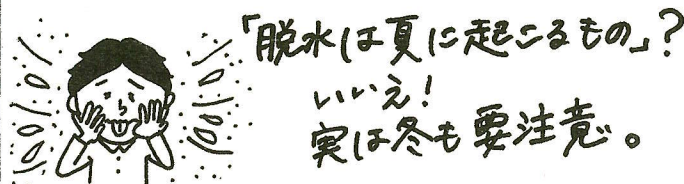 「脱水は夏に起こるもの」?
いいえ!
実は冬も要注意。